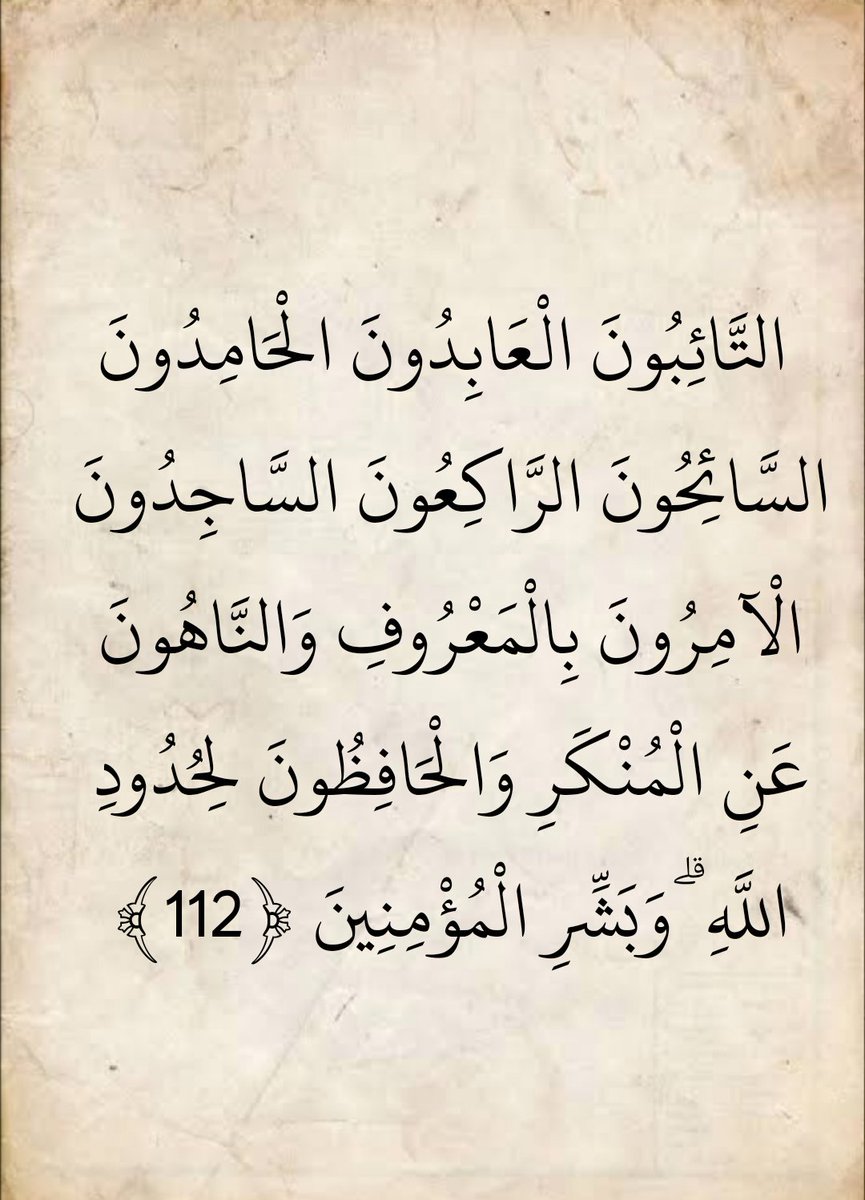 التَّائِبُونَ الْعَابِدُونَ الْحَامِدُونَ
السَّائِحُونَ الرَّاكِعُونَ السَّاجِدُونَ
الْآمِرُونَ بِالْمَعْرُوفِ وَالنَّاهُونَ
عَنِ الْمُنْكَرِ وَالْحَافِظُونَ لِحُدُودِ
اللَّهِ ۗ وَبَشِّرِ الْمُؤْمِنِينَ ﴿112﴾